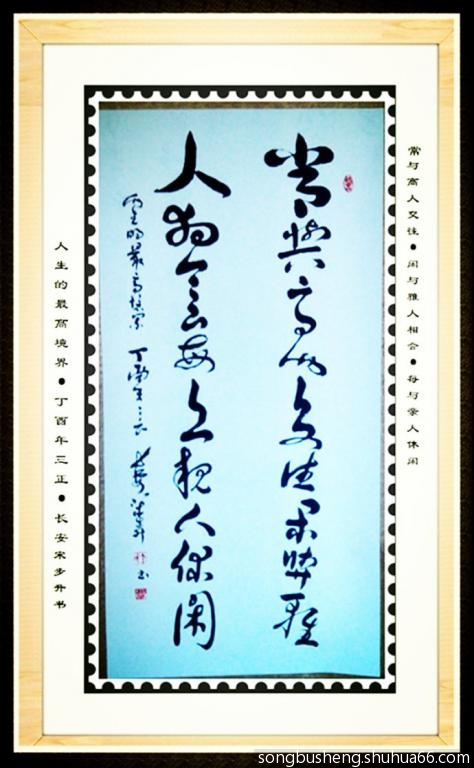 常与高人交往●闲与雅人相会●每与亲人休闲
常與高人交往闲與雅
人相会每与親人休闲
人生的最高境界 丁酉年三正 長安宋步升书
人生的最高境界●丁酉年三正●长安宋步升书
songbusheng.shuhua66.com